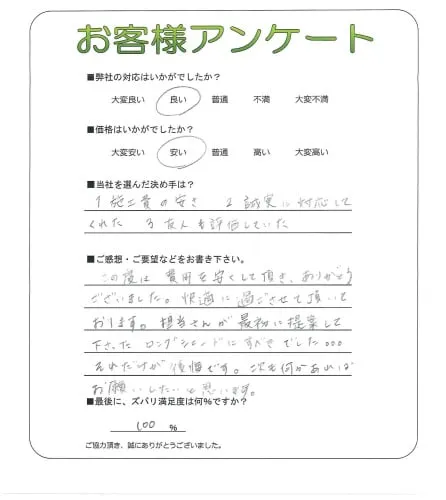 お客様アンケート
■弊社の対応はいかがでしたか？
大変良い 良い 普通 不満 大変不満
■価格はいかがでしたか？
大変安い 安い 普通 高い 大変高い
■当社を選んだ決め手は？
1 施工費の安さ 2 誠実に対応して
くれた 3 友人も評価していた
■ご感想・ご要望などをお書き下さい。
この度は 費用を安くして頂き、ありがとう
ございました。快適に過ごさせて頂いて
おります。担当さんが最初に提案して
下さった ロングシェードにすべきでした。。。
それだけが後悔です。次も何かあれば
お願いしたいと思います。
■最後に、ズバリ満足度は何%ですか？
100 %
ご協力頂き、誠にありがとうございました。